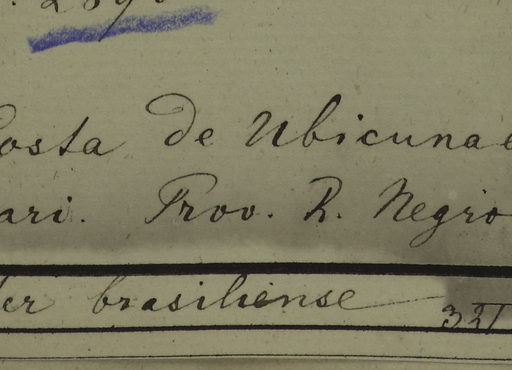 osta de Ubicuna
ari. Prov. R. Negro
er brasiliense